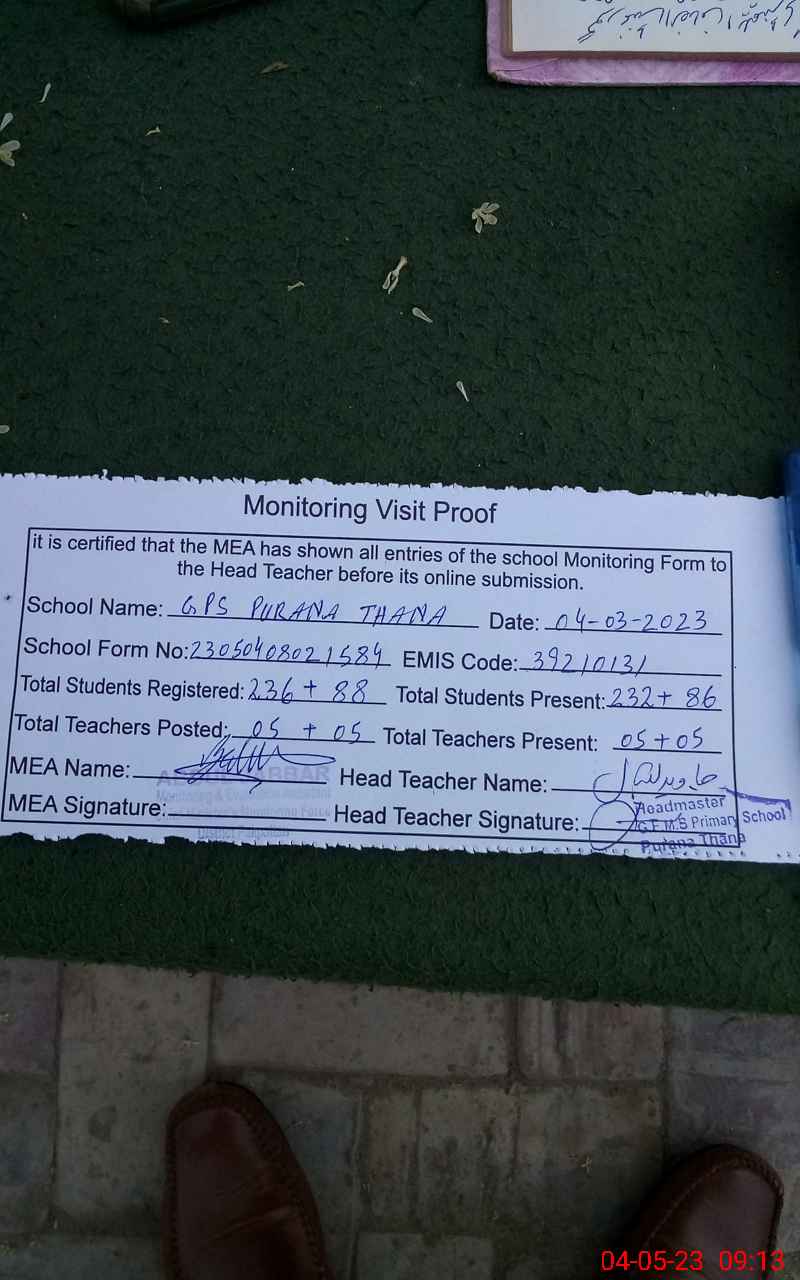 Monitoring Visit Proof
it is certified that the MEA has shown all entries of the school Monitoring Form to
the Head Teacher before its online submission.
School Name: GPS PURANA THANA Date: 04-03-2023
School Form No: 23050408021584 EMIS Code: 39210131
Total Students Registered: 236 + 88 Total Students Present: 232 + 86
Total Teachers Posted: 05 + 05 Total Teachers Present: 05 + 05
MEA Name: ABBAR Head Teacher Name: جاوید اقبال
Monitoring & Evaluation Assistant
MEA Signature: Head Teacher Signature:
Headmaster
Primary School
Purana Thana
04-05-23 09:13